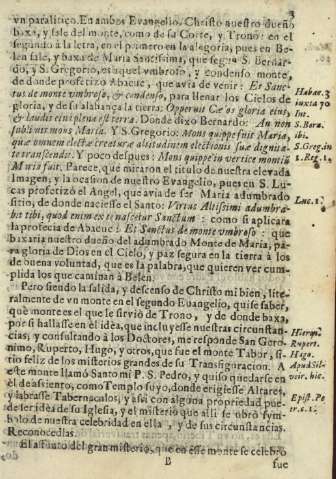 3
vn paralitico. En ambos Evangelio. Christo nuestro dueño
baxa, y sale del monte, como de su Corte, y Trono: en el
segundo à la letra, en el primero en la alegoria, pues en Be-
len sale, y baxa de Maria Santissima, que segun S. Bernar-
do, y S. Gregorio, es aquel vmbroso, y condenso monte,
de donde profetizò Abacuc, que avia de venir: Et Sanc-
tus de monte vmbroso, & condenso, para llenar los Cielos de
gloria, y de su alabança la tierra: Opperuit Cælos gloria eius,
& laudis eius plena est terra. Donde dixo Bernardo: An non
sublimis mons Maria. Y S. Gregorio: Mons quippe fuit Maria,
quæ omnem electæ creaturæ altitudinem electionis suæ dignita-
te transcendit. Y poco despues: Mons quippe in vertice montiū
Maria fuit. Parece, que miraron el titulo de nuestra elevada
Imagen; y la ocasion de nuestro Evangelio, pues en S. Lu-
cas profetizò el Angel, que avia de ser Maria adumbrado
sitio, de donde naciesse el Santo: Virtus Altissimi adumbra-
bit tibi, quod enim ex te nascetur Sanctum: como si aplicara
la profecia de Abacuc: Et Sanctus de monte vmbroso: que
baxaria nuestro dueño del adumbrado Monte de Maria, pa-
ra gloria de Dios en el Cielo, y paz segura en la tierra à los
de buena voluntad, que es la palabra, que quieren ver cum-
plida los que caminan à Belen.
Pero siendo la salida, y descenso de Christo mi bien, lite-
ralmente de vn monte en el segundo Evangelio, quise saber,
què monte es el que le sirviò de Trono, y de donde baxa,
por si hallasse en èl idèa, que incluyesse nuestras circunstan-
cias, y consultando à los Doctores, me responde San Gero-
nimo, Ruperto, Hugo, y otros, que fue el monte Tabor, si-
tio feliz de los misterios grandes de su Transfiguracion. A
este monte llamò Santo mi P. S. Pedro, y quiso quedarse en
èl de assiento, como Templo suyo, donde erigiesse Altares,
y labrasse Tabernaculos, y assi con alguna propriedad pue-
de ser idèa de su Iglesia, y el misterio que alli se obrò sym-
bolo de nuestra celebridad en ella, y de sus circunstancias.
Reconocedlas.
El assunto del gran misterio, que en esse monte se celebrò
B fue
Habac. 3
iuxta 70
Int.
S. Bar.
ibi.
S. Greg. in
1. Reg. 1.
Luc. 1.
Hieron.
Rupert.
Hugo.
Apud Sil-
voir. hic.
Epist. Pe-
tr. c. 1.